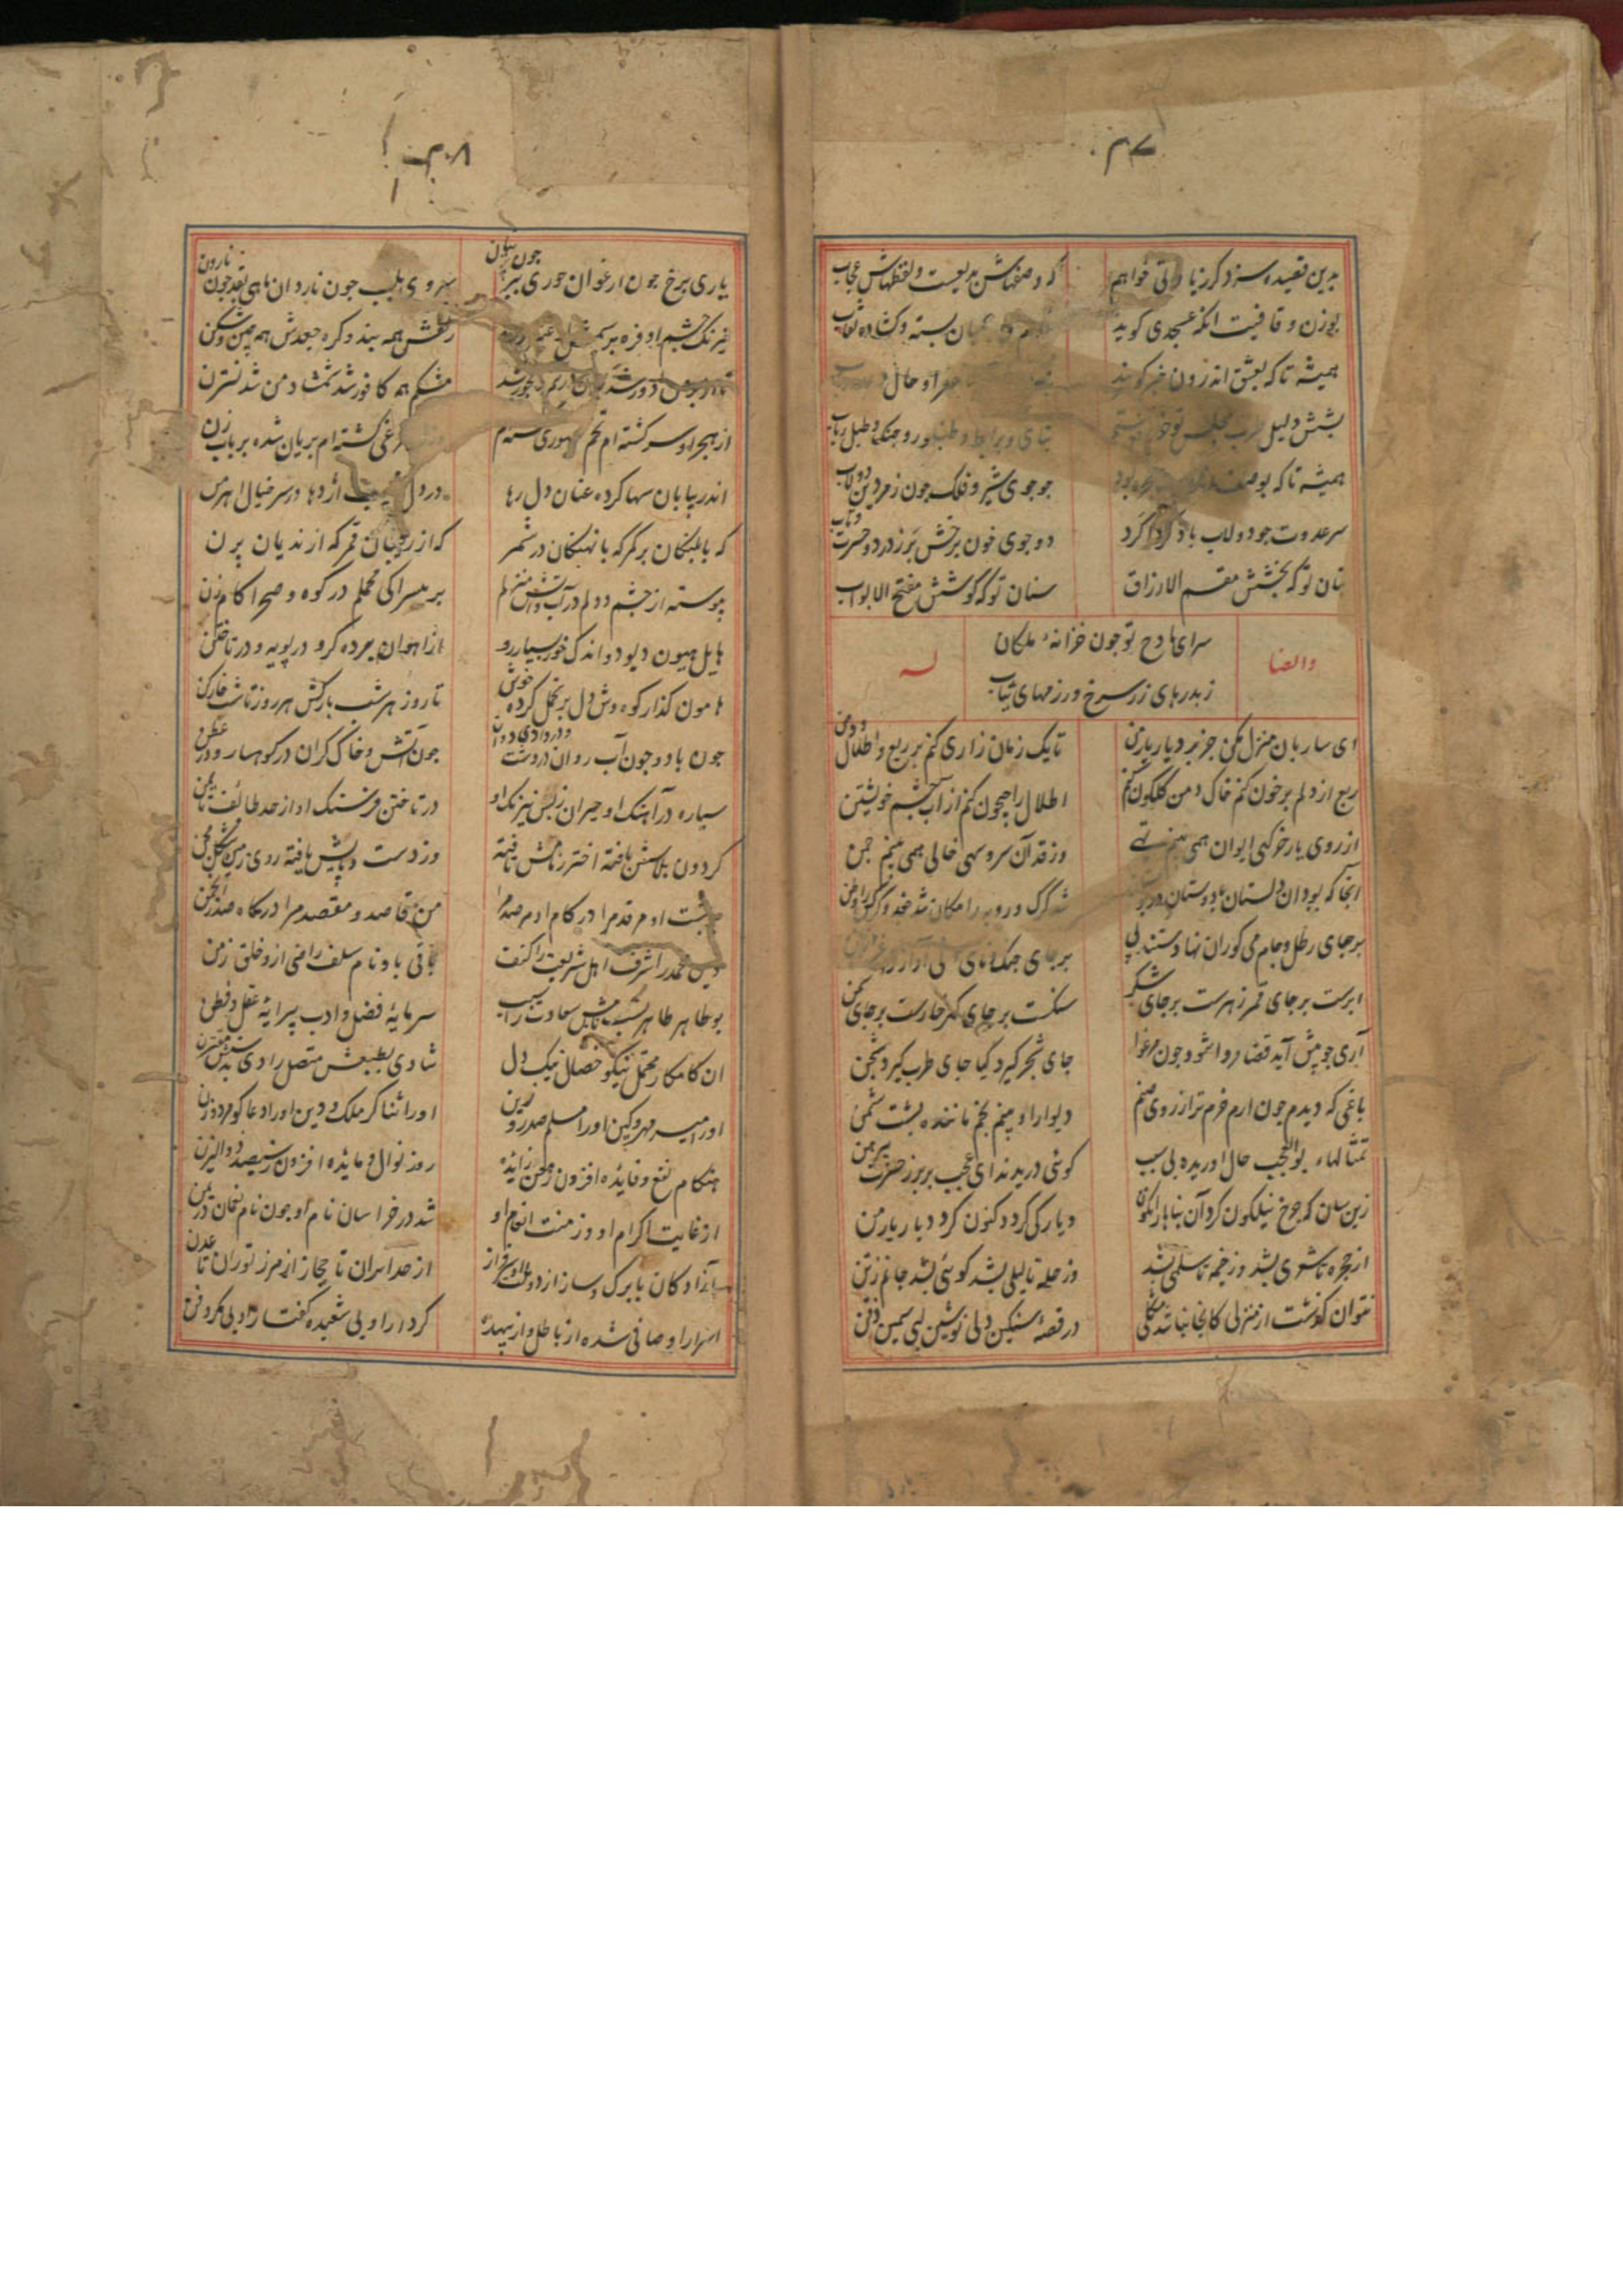 ۴۷
بدین قصیده سزد کر زیادتی خواهم
که وصفهاش بدیعست و لفظهاش عجاب
بوزن و قافیت آنکه عسجدی کوید
بسته و کشاده نقاب
همیشه تا که بعشق اندرون خبر کویند
حال
بشش دلیل طرب مجلس تو خالی نیست
بنای و بربط و طنبور و چنک و طبل رباب
همیشه تا که بوصف
چو جوی شیر و فلک چون زمردین دولاب
سر عدوت چو دولاب باد کرداکرد
دو جوی خون برخش بر ز درد و حسرت و تاب
بنان تو که بخشش مقسم الارزاق
سنان تو که کوشش مفتح الابواب
سرای مادح تو چون خزانهٔ ملکان
ز بدرهای زر سرخ و رزمهای ثیاب
و ایضا
له
ای ساربان منزل مکن جز بر دیار یار من
تا یک زمان زاری کنم بر ربع و اطلال و دمن
ربع از دلم پر خون کنم خاک دمن کلکون کنم
اطلال را جیحون کنم از آب چشم خویشتن
از روی یار خرکهی ایوان همی بینم تهی
وز قد آن سرو سهی خالی همی بینم چمن
آنجا که بود آن دلستان با دوستان در بوستان
شد کرک و روبه را مکان شد جغد و کرکس را وطن
بر جای رطل و جام می کوران نهادستند پی
بر جای چنک و نای و نی آواز زاغست و زغن
ابرست بر جای قمر زهرست بر جای شکر
سنکست بر جای کهر خارست بر جای سمن
آری چو پیش آید قضا مروا شود چون مرغوا
جای شجر کیرد کیا جای طرب کیرد شجن
باغی که دیدم چون ارم خرم تر از روی صنم
دیوار او بینم بخم ماننده پشت شمن
تمثالهاء بوالعجب حال آوریده بی سبب
کوئی دریدند ای عجب بر بر ز حسرت پیرهن
زین سان که چرخ نیلکون کرد آن بناها را نکون
دیار کی کردد کنون کرد دیار یار من
از حجره تا سعدی بشد وز خیمه تا سلمی بشد
وز حله تا لیلی بشد کوئی بشد جانم ز تن
نتوان کذشت از منزلی کانجا نباشد مشکلی
در قصهٔ سنکین دلی نوشین لبی سیمین ذقن
۴۸
یاری برخ چون ارغوان حوری ببر چون پرنیان
سروی بلب چون ناردان ماهی بقد چون نارون
نیرنک چشم او فره بر سیمش از عنبر زره
زلفش همه بند و کره جعدش همه چین و شکن
تا از بر من دور شد
مشکم همه کافور شد شمشاد من شد نسترن
از هجر او سرکشته ام تخم صبوری کشته ام
مرغی کشته ام بریان شده بر بابزن
اندر بیابان سها کرده عنان دل رها
در دل نهیب اژدها در سر خیال اهرمن
که با پلنکان بر کمر که با نهنکان در شمر
که از رفیقان قمر که از ندیمان پرن
پیوسته از چشم و دلم در آب و آتش منزلم
بر بیسراکی محملم در کوه و صحرا کام زن
هایل هیون دیو دو اندک خور بسیار رو
از آهوان برده کرو در پویه و در تاختن
هامون کذار کوه وش دل بر تحمل کرده خوش
تا روز هر شب بارکش هر روز تا شب خارکن
چون باد و چون آب روان در دشت و در وادی دوان
چون آتش و خاک کران در کوهسار و در عطن
سیاره در آهنک او حیران ز بس نیرنک او
در تاختن فرسنک او از حد طائف تا ختن
کردون پلاسش بافته اختر زمامش تافته
وز دست و پایش یافته روی زمین شکل مجن
بر پشت او مرقد مرا در کام او مرصد مرا
من قاصد و مقصد مرا درکاه صدر انجمن
دین محمد را شرف اهل شریعت را کنف
باقی باو نام سلف راضی ازو خلق زمن
بوطاهر طاهر نسب نامش سعادت را سبب
سرمایهٔ فضل و ادب پیرایهٔ عقل و فطن
آن کامکار محتمل نیکو خصال نیک دل
شادی بطبعش متصل رادی بدستش مقترن
او را میسر مهر و کین او را مسلم صدر و زین
او را ثناکر ملک و دین او را دعاکو مرد و زن
هنکام نفع و فایده افزون ز معن زایده
روز نوال و مایده افزون ز سیف ذو الیزن
از غایت اکرام او وز منت انعام او
شد در خراسان نام او چون نام نعمان در یمن
آزادکان با برک و ساز از دولت او سرفراز
از حد ایران تا حجاز از مرز توران تا عدن
اسرار او صافی شده از باطل و از بیهده
کردار او بی شعبده کفتار او بی مکر و فن